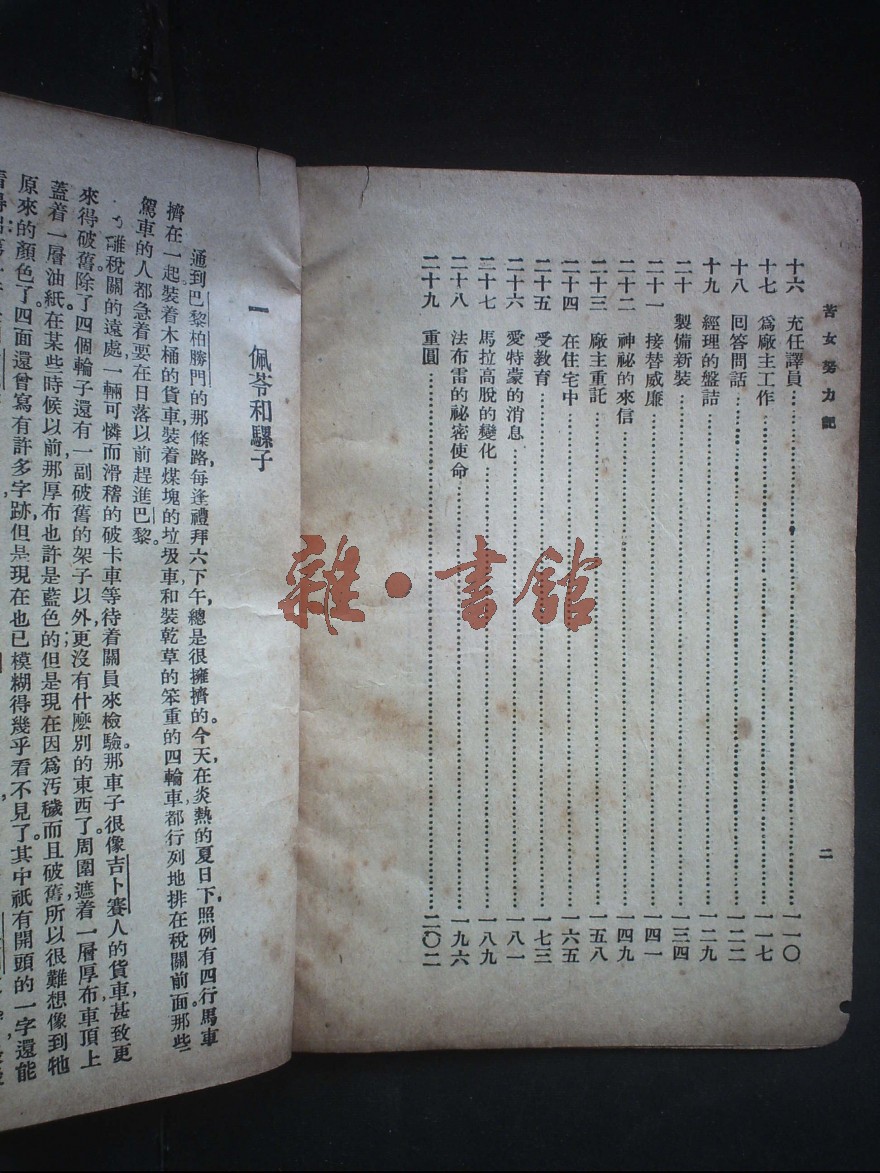 苦女努力記
二
十六 充任譯員 一一〇
十七 為廠主工作 一一七
十八 回答問話 一二二
十九 經理的盤詰 一二九
二十 製備新裝 一三四
二十一 接替威廉 一四一
二十二 神祕的來信 一四九
二十三 廠主重託 一五八
二十四 在住宅中 一六五
二十五 受教育 一七三
二十六 愛特蒙的消息 一八一
二十七 馬拉高脫的變化 一八九
二十八 法布雷的祕密使命 一九六
二十九 重圓 二〇二
一 佩苓和騾子
通到巴黎柏勝門的那條路,每逢禮拜六下午,總是很擁擠的。今天,在炎熱的夏日下,照例有四行馬車
擠在一起。裝着木桶的貨車,裝着煤塊的垃圾車和裝乾草的笨重的四輪車,都行列地排在稅關前面。那些
駕車的人都急着要在日落以前趕進巴黎。
離稅關的遠處,一輛可憐而滑稽的破卡車,等待着關員來檢驗。那車子很像吉卜賽人的貨車,甚致更
來得破舊。除了四個輪子,還有一副破舊的架子以外,更沒有什麼別的東西了。周圍遮着一層厚布,車頂上
蓋着一層油紙。在某些時候以前,那厚布也許是藍色的;但是現在因為汚穢而且破舊,所以很難想像到牠
原來的顏色了。四面還曾寫有許多字跡,但是現在也已模糊得幾乎看不見了。其中祇有開頭的一字還能
雜·書館